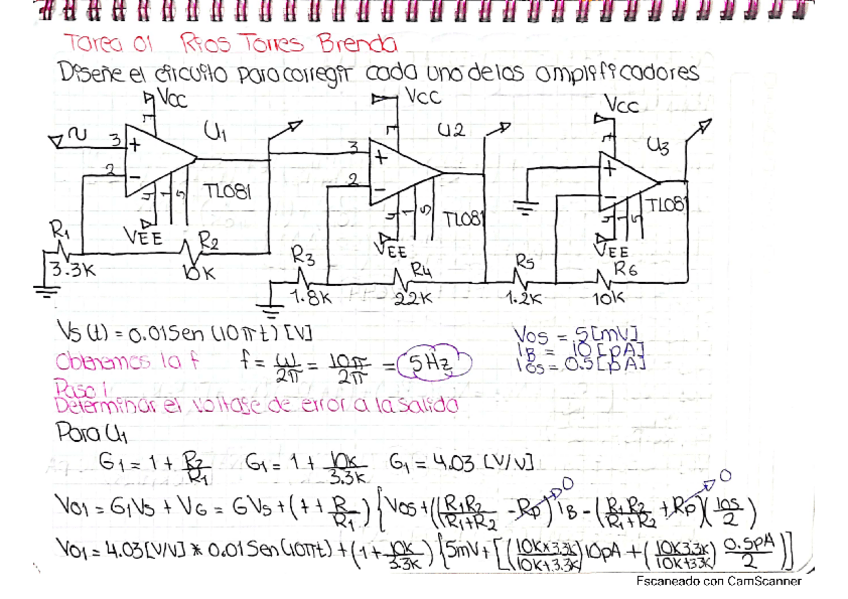 Tarea 01 Ríos Torres Brenda
Diseñe el circuito para corregir cada uno de los amplificadores
Vcc Vcc Vcc
U1 U2 U3
3 + 3 + +
2 - 2 - -
4 1 5 TL081 4 1 5 TL081 4 1 5 TL081
VEE VEE VEE
R1 R2 R3 R4 R5 R6
3.3K 10K 1.8K 22K 1.2K 10K
Vs(t) = 0.01Sen(10πt)[V] Vos = 5[mV]
IB = 10[pA]
Obtenemos la f f = ω/2π = 10π/2π = 5Hz Ios = 0.5[pA]
Paso 1
Determinar el voltaje de error a la salida
Para U1
G1 = 1 + R2/R1 G1 = 1 + 10K/3.3K G1 = 4.03 [V/V]
Vo1 = G1Vs + VG = GVs + (1 + R/R1) {Vos + ((R1R2/R1+R2 - Rp) IB - (R1R2/R1+R2 + Rp)(Ios/2) 0 0
Vo1 = 4.03[V/V] * 0.01Sen(10πt) + (1 + 10K/3.3K) {5mV + [(10K×3.3K/10K+3.3K) 10pA + (10K3.3K/10K+3.3K) 0.5pA/2)]
Escaneado con CamScanner